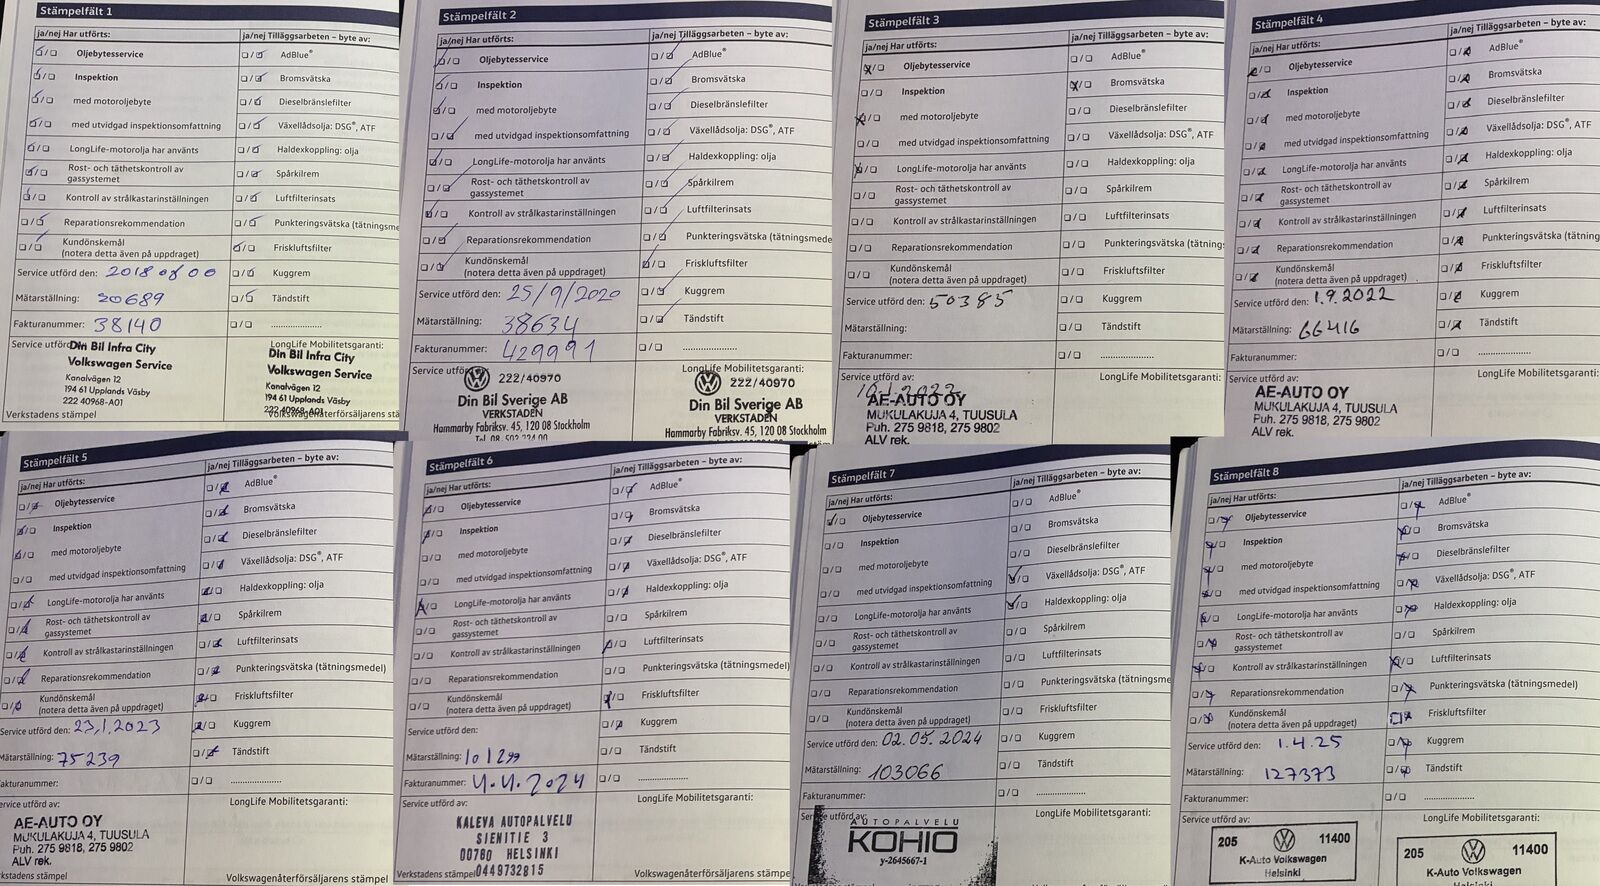 Stämpelfält 1
ja/nej Har utförts:
Oljebytesservice
Inspektion
med motoroljebyte
med utvidgad inspektionsomfattning
LongLife-motorolja har använts
Rost- och täthetskontroll av
gassystemet
Kontroll av strålkastarinställningen
Reparationsrekommendation
Kundönskemål
(notera detta även på uppdraget)
Service utförd den: 2018
Mätarställning: 20689
Fakturanummer: 38140
Service utförd
Din Bil Infra City
Volkswagen Service
Kanalvägen 12
194 61 Upplands Väsby
222 40968-A01
Verkstadens stämpel
ja/nej Tilläggsarbeten – byte av:
AdBlue®
Bromsvätska
Dieselbränslefilter
Växellådsolja: DSG®, ATF
Haldexkoppling: olja
Spårkilrem
Luftfilterinsats
Punkteringsvätska (tätnings
Friskluftsfilter
Kuggrem
Tändstift
LongLife Mobilitetsgaranti:
Din Bil Infra City
Volkswagen Service
Kanalvägen 12
194 61 Upplands Väsby
222 40968-A01
Volkswagenåterförsäljarens stä
Stämpelfält 2
ja/nej Har utförts:
Oljebytesservice
Inspektion
med motoroljebyte
med utvidgad inspektionsomfattning
LongLife-motorolja har använts
Rost- och täthetskontroll av
gassystemet
Kontroll av strålkastarinställningen
Reparationsrekommendation
Kundönskemål
(notera detta även på uppdraget)
Service utförd den: 25/9/2020
Mätarställning: 38634
Fakturanummer: 429991
Service utförd
222/40970
Din Bil Sverige AB
VERKSTADEN
Hammarby Fabriksv. 45, 120 08 Stockholm
Tel. 08-502 224 00
ja/nej Tilläggsarbeten – byte av:
AdBlue®
Bromsvätska
Dieselbränslefilter
Växellådsolja: DSG®, ATF
Haldexkoppling: olja
Spårkilrem
Luftfilterinsats
Punkteringsvätska (tätningsmede
Friskluftsfilter
Kuggrem
Tändstift
LongLife Mobilitetsgaranti:
222/40970
Din Bil Sverige AB
VERKSTADEN
Hammarby Fabriksv. 45, 120 08 Stockholm
Stämpelfält 3
ja/nej Har utförts:
Oljebytesservice
Inspektion
med motoroljebyte
med utvidgad inspektionsomfattning
LongLife-motorolja har använts
Rost- och täthetskontroll av
gassystemet
Kontroll av strålkastarinställningen
Reparationsrekommendation
Kundönskemål
(notera detta även på uppdraget)
Service utförd den: 50385
Mätarställning:
Fakturanummer:
Service utförd av:
AE-AUTO OY
MUKULAKUJA 4, TUUSULA
Puh. 275 9818, 275 9802
ALV rek.
ja/nej Tilläggsarbeten – byte av:
AdBlue®
Bromsvätska
Dieselbränslefilter
Växellådsolja: DSG®, ATF
Haldexkoppling: olja
Spårkilrem
Luftfilterinsats
Punkteringsvätska (tätnings
Friskluftsfilter
Kuggrem
Tändstift
LongLife Mobilitetsgaranti:
Stämpelfält 4
ja/nej Har utförts:
Oljebytesservice
Inspektion
med motoroljebyte
med utvidgad inspektionsomfattning
LongLife-motorolja har använts
Rost- och täthetskontroll av
gassystemet
Kontroll av strålkastarinställningen
Reparationsrekommendation
Kundönskemål
(notera detta även på uppdraget)
Service utförd den: 1.9.2022
Mätarställning: 66416
Fakturanummer:
Service utförd av:
AE-AUTO OY
MUKULAKUJA 4, TUUSULA
Puh. 275 9818, 275 9802
ALV rek.
ja/nej Tilläggsarbeten – byte av:
AdBlue®
Bromsvätska
Dieselbränslefilter
Växellådsolja: DSG®, ATF
Haldexkoppling: olja
Spårkilrem
Luftfilterinsats
Punkteringsvätska (tätning
Friskluftsfilter
Kuggrem
Tändstift
LongLife Mobilitetsga
Stämpelfält 5
ja/nej Har utförts:
Oljebytesservice
Inspektion
med motoroljebyte
med utvidgad inspektionsomfattning
LongLife-motorolja har använts
Rost- och täthetskontroll av
gassystemet
Kontroll av strålkastarinställningen
Reparationsrekommendation
Kundönskemål
(notera detta även på uppdraget)
Service utförd den: 23.1.2023
Mätarställning: 75239
Fakturanummer:
ervice utförd av:
AE-AUTO OY
MUKULAKUJA 4, TUUSULA
Puh. 275 9818, 275 9802
ALV rek.
rkstadens stämpel
ja/nej Tilläggsarbeten – byte av:
AdBlue®
Bromsvätska
Dieselbränslefilter
Växellådsolja: DSG®, ATF
Haldexkoppling: olja
Spårkilrem
Luftfilterinsats
Punkteringsvätska (tätningsmedel)
Friskluftsfilter
Kuggrem
Tändstift
LongLife Mobilitetsgaranti:
Volkswagenåterförsäljarens stämpel
Stämpelfält 6
ja/nej Har utförts:
Oljebytesservice
Inspektion
med motoroljebyte
med utvidgad inspektionsomfattning
LongLife-motorolja har använts
Rost- och täthetskontroll av
gassystemet
Kontroll av strålkastarinställningen
Reparationsrekommendation
Kundönskemål
(notera detta även på uppdraget)
Service utförd den:
Mätarställning: 101299
Fakturanummer: 4.4.2024
Service utförd av:
KALEVA AUTOPALVELU
SIENITIE 3
00760 HELSINKI
0449732815
Verkstadens stämpel
ja/nej Tilläggsarbeten – byte av:
AdBlue®
Bromsvätska
Dieselbränslefilter
Växellådsolja: DSG®, ATF
Haldexkoppling: olja
Spårkilrem
Luftfilterinsats
Punkteringsvätska (tätningsmedel)
Friskluftsfilter
Kuggrem
Tändstift
LongLife Mobilitetsgaranti:
Volkswagenåterförsäljarens stämpel
Stämpelfält 7
ja/nej Har utförts:
Oljebytesservice
Inspektion
med motoroljebyte
med utvidgad inspektionsomfattning
LongLife-motorolja har använts
Rost- och täthetskontroll av
gassystemet
Kontroll av strålkastarinställningen
Reparationsrekommendation
Kundönskemål
(notera detta även på uppdraget)
Service utförd den: 02.05.2024
Mätarställning: 103066
Fakturanummer:
Service utförd av:
AUTOPALVELU
KOHIO
y-2645667-1
ja/nej Tilläggsarbeten – byte av:
AdBlue®
Bromsvätska
Dieselbränslefilter
Växellådsolja: DSG®, ATF
Haldexkoppling: olja
Spårkilrem
Luftfilterinsats
Punkteringsvätska (tätningsme
Friskluftsfilter
Kuggrem
Tändstift
LongLife Mobilitetsgaranti:
Stämpelfält 8
ja/nej Har utförts:
Oljebytesservice
Inspektion
med motoroljebyte
med utvidgad inspektionsomfattning
LongLife-motorolja har använts
Rost- och täthetskontroll av
gassystemet
Kontroll av strålkastarinställningen
Reparationsrekommendation
Kundönskemål
(notera detta även på uppdraget)
Service utförd den: 1.4.25
Mätarställning: 127373
Fakturanummer:
Service utförd av:
205 11400
K-Auto Volkswagen
Helsinki
ja/nej Tilläggsarbeten – byte av:
AdBlue®
Bromsvätska
Dieselbränslefilter
Växellådsolja: DSG®, ATF
Haldexkoppling: olja
Spårkilrem
Luftfilterinsats
Punkteringsvätska (tätningsmedel)
Friskluftsfilter
Kuggrem
Tändstift
LongLife Mobilitetsgaranti:
205 11400
K-Auto Volkswagen
Helsinki